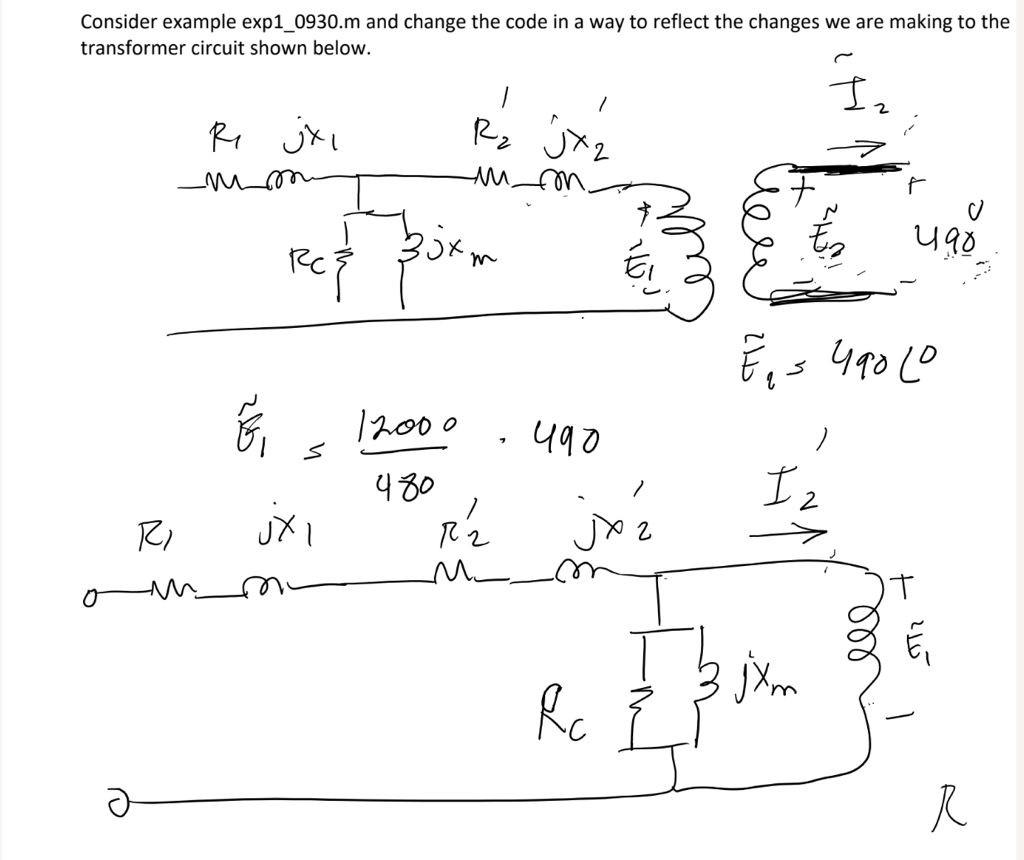 Consider example exp1_0930.m and change the code in a way to reflect the changes we are making to the
transformer circuit shown below.
Ĩ₂
R₁ jx₁ R₂' jx₂'
Rc jxm
+ Ẽ₁ -
+ Ẽ₂ -
+ 490 -
Ẽ₂ = 490∠0
Ẽ₁ = 12000/480 · 490
I₂'
R₁ jx₁ R₂' jx₂'
Rc jxm
+ Ẽ₁ -
R